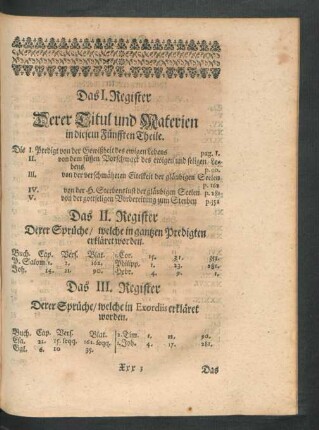 Das I. Register
Derer Titul und Materien
in diesem Fünfften Theile.
Die I. Predigt von der Gewißheit des ewigen Lebens pag. 1.
II. von dem süssen Vorschmack des ewigen und seligen Le-
bens p. 90.
III. von der verschmähten Eitelkeit der gläubigen Seelen
p. 162
IV. von der H. Sterbenslust der gläubigen Seelen p. 281.
V. von der gottseligen Vorbereitung zum Sterben p. 351
Das II. Register
Derer Sprüche / welche in gantzen Predigten
erkläret worden.
Buch. Cap. Vers. Blat. 1. Cor. 15. 31. 351.
P. Salom. 1. 2. 162. Philipp. 1. 23. 281.
Joh. 14. 2. 90. Hebr. 4. 9. 1.
Das III. Register
Derer Sprüche / welche in Exordiis erkläret
worden.
Buch. Cap. Vers. Blat. 2. Tim. 1. 12. 90.
Esa. 21. 15. seqq. 162. seqq. 1. Joh. 4. 17. 281.
Egl. 6. 10 37.
Xxx 3 Das